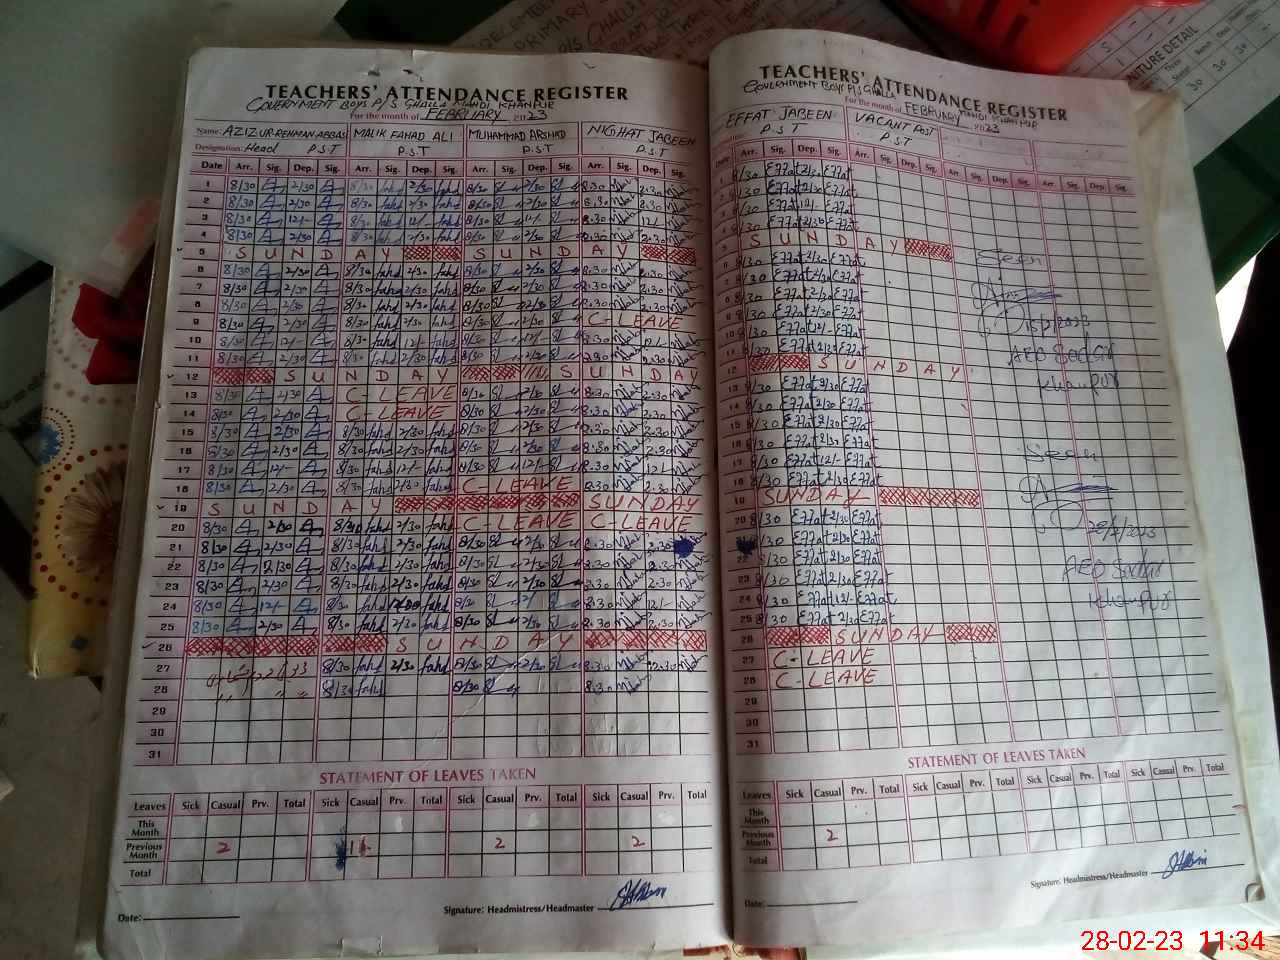 TEACHERS' ATTENDANCE REGISTER
GOVERNMENT BOYS P/S GHALLA MANDI KHANPUR
For the month of FEBRUARY 2023
Name: AZIZ UR-REHMAN ABBAS MALIK FAHAD ALI MUHAMMAD ARSHAD NIGHAT JABEEN
Designation: Head P.S.T P.S.T P.S.T P.S.T
Date Arr. Sig. Dep. Sig. Arr. Sig. Dep. Sig. Arr. Sig. Dep. Sig. Arr. Sig. Dep. Sig.
1 8/30 2/30 8/30 fahd 2/30 fahd 8/30 2/30 8.30 2.30
2 8/30 2/30 8/30 fahd 2/30 fahd 8/30 2/30 8.30 2.30
3 8/30 12/- 8/30 fahd 12/- fahd 8/30 12/- 8.30 12/-
4 8/30 2/30 8/30 fahd 2/30 fahd 8/30 2/30 8.30 2.30
5 SUNDAY SUNDAY
6 8/30 2/30 8/30 fahd 2/30 fahd 8/30 2/30 8.30 2.30
7 8/30 2/30 8/30 fahd 2/30 fahd 8/30 2/30 8.30 2.30
8 8/30 2/30 8/30 fahd 2/30 fahd 8/30 2/30 8.30 2.30
9 8/30 2/30 8/30 fahd 2/30 fahd 8/30 2/30 C-LEAVE
10 8/30 12/- 8/30 fahd 12/- fahd 8/30 12/- 8.30 12/-
11 8/30 2/30 8/30 fahd 2/30 fahd 8/30 2/30 8.30 2.30
12 SUNDAY SUNDAY
13 8/30 2/30 C-LEAVE 8/30 2/30 8.30 2.30
14 8/30 2/30 C-LEAVE 8/30 2/30 8.30 2.30
15 8/30 2/30 8/30 fahd 2/30 fahd 8/30 2/30 8.30 2.30
16 8/30 2/30 8/30 fahd 2/30 fahd 8/30 2/30 8.30 2.30
17 8/30 12/- 8/30 fahd 12/- fahd 8/30 12/- 8.30 12/-
18 8/30 2/30 8/30 fahd 2/30 fahd C-LEAVE 8.30 2.30
19 SUNDAY SUNDAY
20 8/30 2/30 8/30 fahd 2/30 fahd C-LEAVE C-LEAVE
21 8/30 2/30 8/30 fahd 2/30 fahd 8/30 2/30 8.30 2.30
22 8/30 2/30 8/30 fahd 2/30 fahd 8/30 2/30 8.30 2.30
23 8/30 2/30 8/30 fahd 2/30 fahd 8/30 2/30 8.30 2.30
24 8/30 12/- 8/30 fahd fahd 8/30 12/- 8.30 12/-
25 8/30 2/30 8/30 fahd 2/30 fahd 8/30 2/30 8.30 2.30
26 SUNDAY
27 8/30 fahd 2/30 fahd 8/30 2/30 8.30 2.30
28 8/30 fahd 8/30 8.30
29
30
31
STATEMENT OF LEAVES TAKEN
Leaves Sick Casual Prv. Total Sick Casual Prv. Total Sick Casual Prv. Total Sick Casual Prv. Total
This Month
Previous Month 2 2 2
Total
Date: Signature: Headmistress/Headmaster
TEACHERS' ATTENDANCE REGISTER
GOVERNMENT BOYS P/S GHALLA MANDI KHANPUR
For the month of FEBRUARY 2023
EFFAT JABEEN VACANT POST
P.S.T P.S.T
Date Arr. Sig. Dep. Sig. Arr. Sig. Dep. Sig. Arr. Sig. Dep. Sig. Arr. Sig. Dep. Sig.
1 8/30 Effat 2/30 Effat
2 8/30 Effat 2/30 Effat
3 8/30 Effat 12/- Effat
4 8/30 Effat 2/30 Effat
5 SUNDAY
6 8/30 Effat 2/30 Effat
7 8/30 Effat 2/30 Effat
8 8/30 Effat 2/30 Effat
9 8/30 Effat 2/30 Effat
10 8/30 Effat 12/- Effat
11 8/30 Effat 2/30 Effat
12 SUNDAY
13 8/30 Effat 2/30 Effat
14 8/30 Effat 2/30 Effat
15 8/30 Effat 2/30 Effat
16 8/30 Effat 2/30 Effat
17 8/30 Effat 12/- Effat
18 8/30 Effat 2/30 Effat
19 SUNDAY
20 8/30 Effat 2/30 Effat
21 8/30 Effat 2/30 Effat
22 8/30 Effat 2/30 Effat
23 8/30 Effat 2/30 Effat
24 8/30 Effat 12/- Effat
25 8/30 Effat 2/30 Effat
26 SUNDAY
27 C-LEAVE
28 C-LEAVE
29
30
31
Seen
15/2/2023
AEO Sadar
Khanpur
Seen
AEO Sadar
Khanpur
STATEMENT OF LEAVES TAKEN
Leaves Sick Casual Prv. Total Sick Casual Prv. Total Sick Casual Prv. Total Sick Casual Prv. Total
This Month
Previous Month 2
Total
Date: Signature: Headmistress/Headmaster
28-02-23 11:34